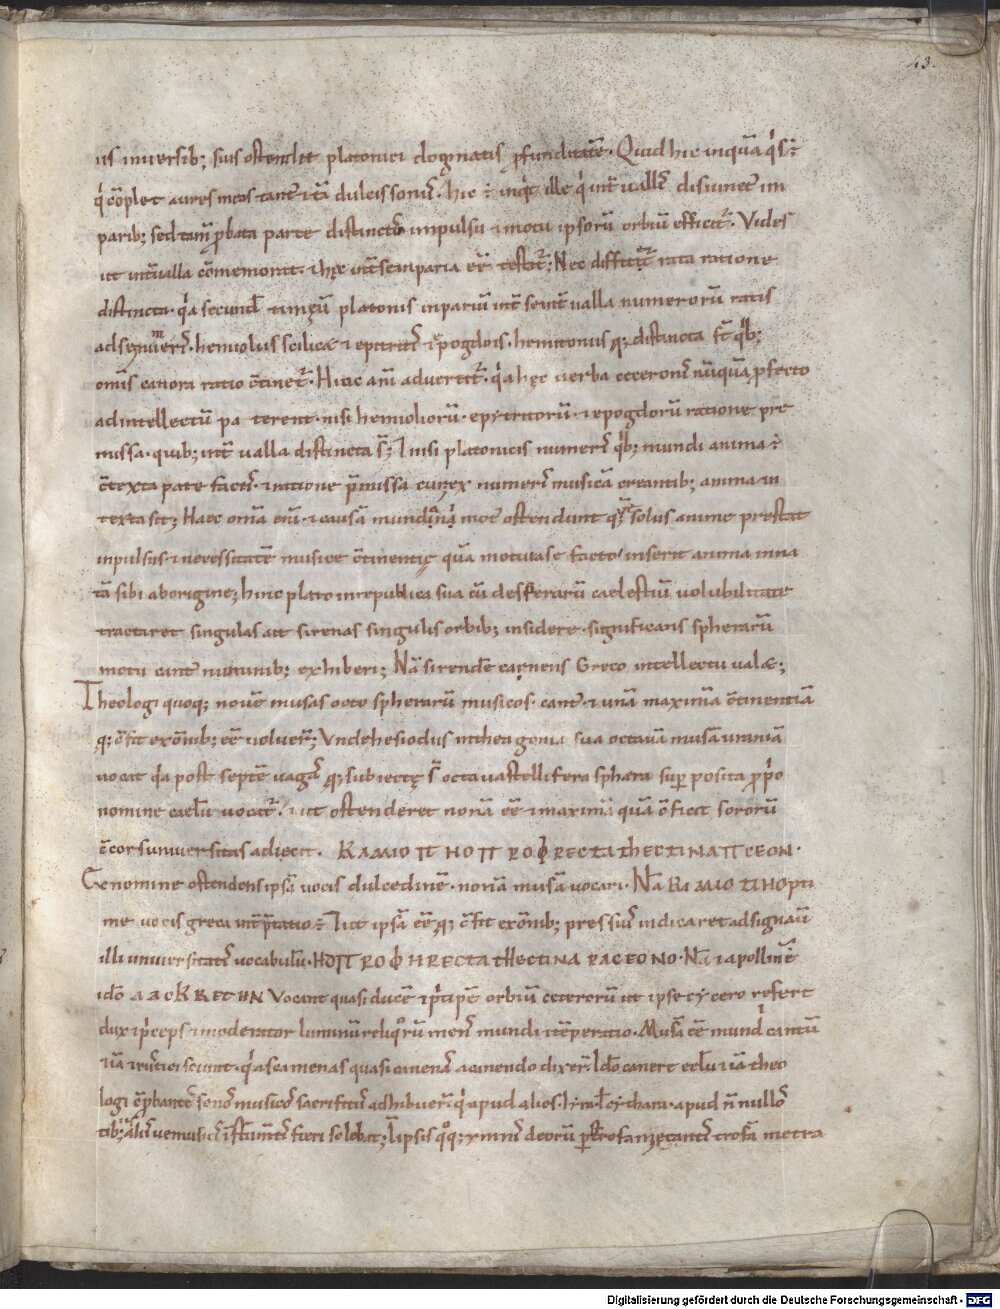 43.
iis inversib; suis ostendit platonici dogmatis ꝓfunditatē. Quid hic inquā q̇s ÷
q̇ cōplet aures meas tant᷒ & tā dulcis son᷒. hic ÷ inqt ille q̇ int̄ vallis disiunct᷒ im
parib; sed tam̄ ꝓ rata parte distinctis impulsu & motu ipsorū orbiū efficit̄. Vides
ut int̄valla cōmemorat. & hęc int̄ se inparia eē testat̄; Nec diffitet̄ rata ratione
distincta. q̇a secund̄ timęū platonis inpariū int̄ se int̄valla numerorū ratis
ad se numeris. hemiolus scilicæ & epitritis & epogdois. hemitoniis q; distincta st̄ q̇b;
omīs canora ratio c̄tinet̄. Hinc anī advertit̄. q̇a hęc verba ciceronis nūquā ꝓfecto
ad intellectū pa terent. nisi hemioliorū. epytritorū. & epogdorū ratione pre
missa. quib; int̄ valla distincta s̄; & nisi platonicis numeris q̇b; mundi anima ÷
c̄texta pate factis. & ratione p̄missa cur ex numeris musicā creantib; anima in
texta sit; Haec om̄a eni᷒ & causā mundani mot᷒ ostendunt quē solus anime prestat
inpulsus & necessitatē musice c̄tinentię quā motui a se facto inserit anima inna
tā sibi ab origine; hinc plato in republica sua cū de sferarū caelestiū volubilitate
tractaret singulas ait sirenas singulis orbib; insidere. significans spherarū
motu cant᷒ numinib; exhiberi; Nā siren dē canens Greco intellectu valæ;
Theologi quoq; novē musas octo spherarū musicos cant᷒. & unā maximā c̄tinentiā
q; c̄fit ex ōmib; eē voluer̄; Vnde hesiodus in theagonia sua octavā musā uraniā
vocat q̇a post septē vagas q; subiectę s̄ octava stellifera sphara sup̄ posita ꝓp̄o
nomine caelū vocat̄. & ut ostenderet nonā eē & maximā quā c̄ficit sonorū
c̄cors universitas adiecit. KAΛΛIOΠ HOΠ ROΦRECTA thECTINAΠCEON.
Ex nomine ostendens ipsā vocis dulcedinē. nonā musā vocari. Nā KAΛΛIOTIHOpti
me vocis greca int̄p̄tatio ÷ & ut ipsā eē q; c̄fit ex ōmib; pressius indicaret adsignavit
illi universitatis vocabulū. HOΠ ROΦHRECTA tHECTINA PACEONO. Nā & apollinē
idō AACKRETHN Vocant quasi ducē & p̄cipē orbiū ceterorū ut ipse cycero refert
dux & p̄ceps & moderator luminū reliq̊rū mens mundi & tēperatio. Musas eē mundi cantū
& iā etrusci sciunt. q̇a s camenas quasi canenas a canendo dixer̄. Idō canere celū & iā theo
logi c̄ꝓbantes sonos musicos sacrificiis adhibuer̄. q̇ apud alios lyra. ł cythara. apud n̄ nullos
tibiis aliisve musicis īstrum̄tis fieri solebat; In ipsis q̊q; ymnis deorū p̄ strofam & anticantis trofā metra
Digitalisierung gefördert durch die Deutsche Forschungsgemeinschaft - DFG